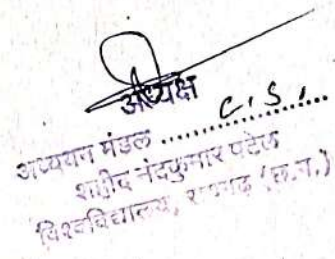 अध्यक्ष
अध्ययन मंडल ..... C.S. .....
शहीद नंदकुमार पटेल
विश्वविद्यालय, रायगढ़ (छ.ग.)